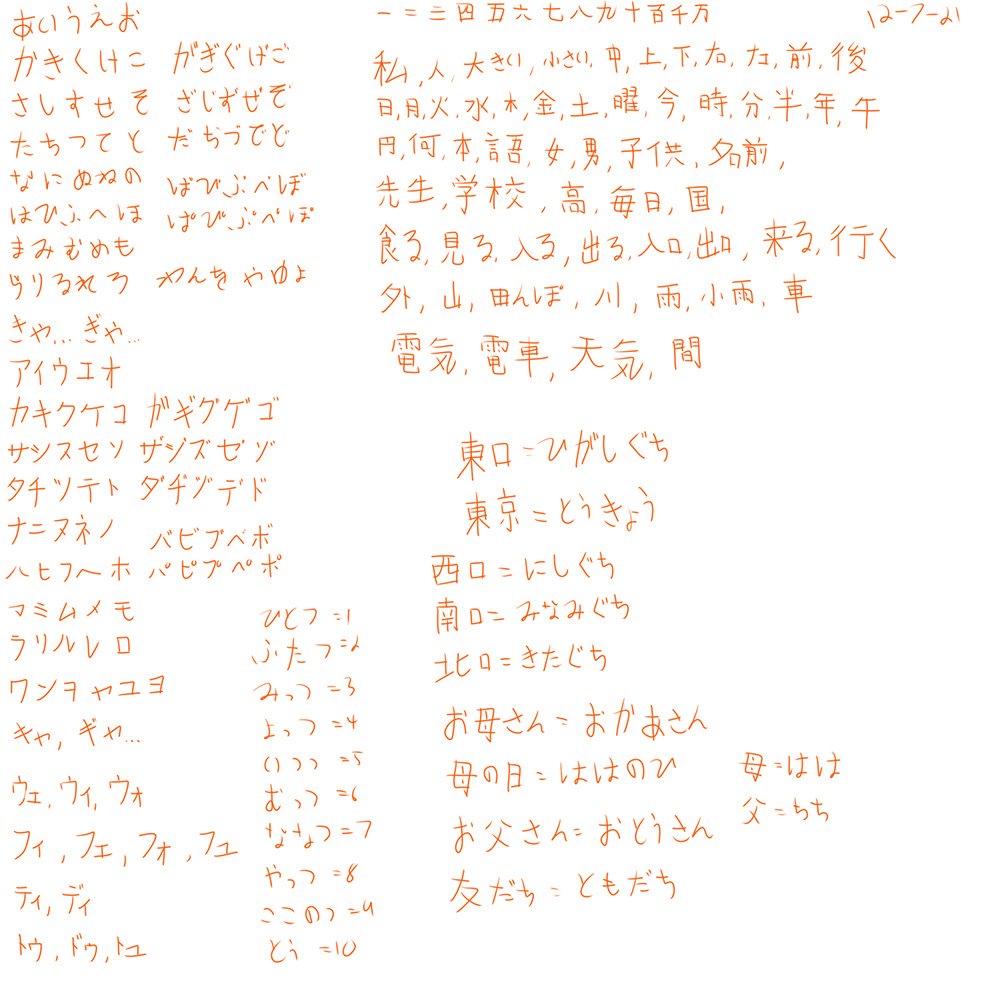 あいうえお
かきくけこ がぎぐげご
さしすせそ ざじずぜぞ
たちつてと だぢづでど
なにぬねの
ばびぶべぼ
はひふへほ
ぱぴぷぺぽ
まみむめも
らりるれろ わんを やゆよ
きゃ… ぎゃ…
アイウエオ
カキクケコ ガギグゲゴ
サシスセソ ザジズゼゾ
タチツテト ダヂヅデド
ナニヌネノ
バビブベボ
ハヒフヘホ パピプペポ
マミムメモ
ラリルレロ
ワンヲ ヤユヨ
キャ, ギャ…
ウェ, ウィ, ウォ
フィ, フェ, フォ, フュ
ティ, ディ
トゥ, ドゥ, トュ
ひとつ=1
ふたつ=2
みっつ=3
よっつ=4
いつつ=5
むっつ=6
ななつ=7
やっつ=8
ここのつ=9
とう=10
一二三四五六七八九十百千万
12-7-21
私, 人, 大きい, 小さい, 中, 上, 下, 右, 左, 前, 後
日, 月, 火, 水, 木, 金, 土, 曜, 今, 時, 分, 半, 年, 午
円, 何, 本, 語, 女, 男, 子供, 名前,
先生, 学校, 高, 毎日, 国,
食る, 見る, 入る, 出る, 入口, 出口, 来る, 行く
外, 山, 田んぽ, 川, 雨, 小雨, 車
電気, 電車, 天気, 間
東口=ひがしぐち
東京=とうきょう
西口=にしぐち
南口=みなみぐち
北口=きたぐち
お母さん=おかあさん
母の日=ははのひ
母=はは
父=ちち
お父さん=おとうさん
友だち=ともだち